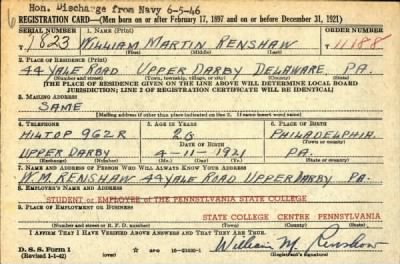 Hon. Discharge from Navy 6-5-46
REGISTRATION CARD—(Men born on or after February 17, 1897 and on or before December 31, 1921)
SERIAL NUMBER 1. NAME (Print) ORDER NUMBER
1823 WILLIAM MARTIN RENSHAW 11188
(First) (Middle) (Last)
2. PLACE OF RESIDENCE (Print)
44 YALE ROAD UPPER DARBY DELAWARE, PA.
(Number and street) (Town, township, village, or city) (County) (State)
[THE PLACE OF RESIDENCE GIVEN ON THE LINE ABOVE WILL DETERMINE LOCAL BOARD
JURISDICTION; LINE 2 OF REGISTRATION CERTIFICATE WILL BE IDENTICAL]
3. MAILING ADDRESS
SAME
[Mailing address if other than place indicated on line 2. If same insert word same]
4. TELEPHONE 5. AGE IN YEARS 6. PLACE OF BIRTH
HILTOP 962R 20 PHILADELPHIA
DATE OF BIRTH (Town or county)
UPPER DARBY 4-11-1921 PA.
(Exchange) (Number) (Mo.) (Day) (Yr.) (State or country)
7. NAME AND ADDRESS OF PERSON WHO WILL ALWAYS KNOW YOUR ADDRESS
W.M. RENSHAW 44 YALE ROAD UPPER DARBY PA.
8. EMPLOYER'S NAME AND ADDRESS
STUDENT or EMPLOYEE OF THE PENNSYLVANIA STATE COLLEGE
9. PLACE OF EMPLOYMENT OR BUSINESS
STATE COLLEGE CENTRE PENNSYLVANIA
(Number and street or R. F. D. number) (Town) (County) (State)
I AFFIRM THAT I HAVE VERIFIED ABOVE ANSWERS AND THAT THEY ARE TRUE.
D. S. S. Form 1 William M. Renshaw
(Revised 1-1-42) (over) (Registrant's signature)